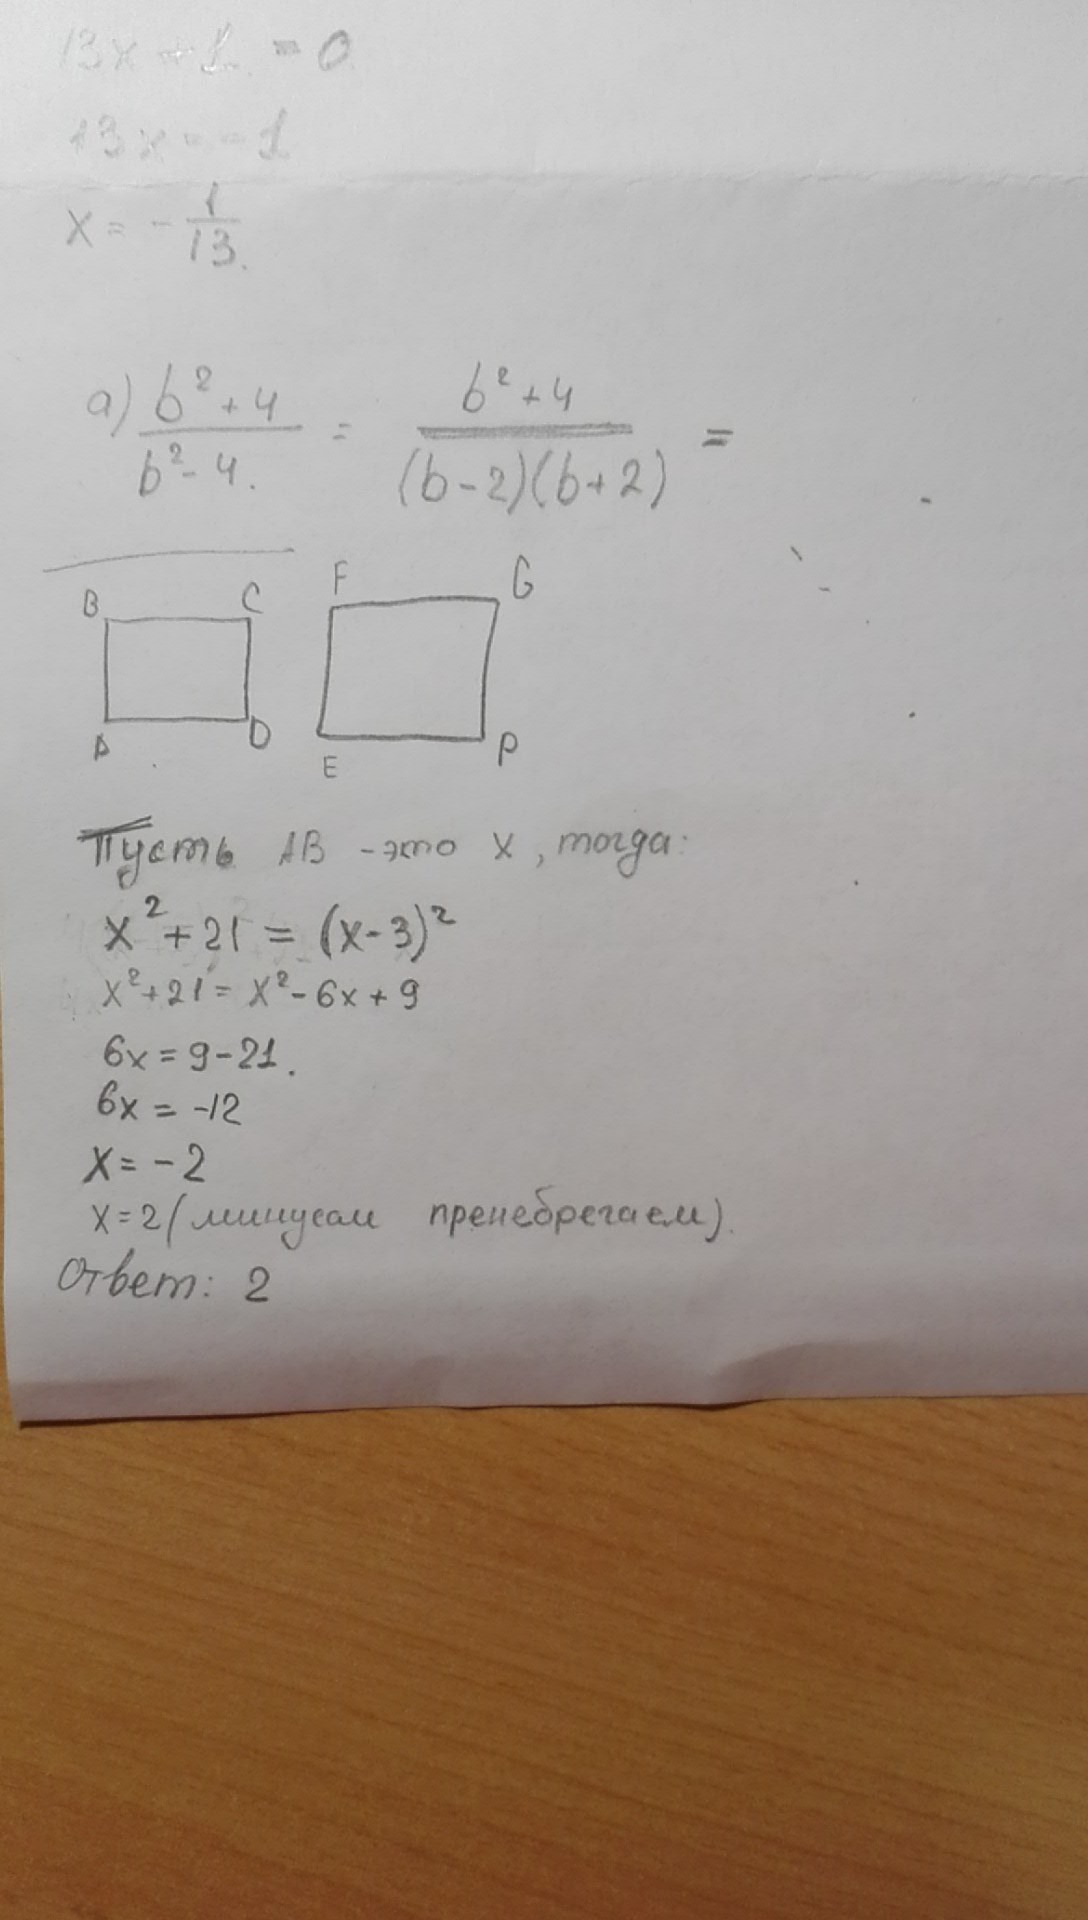 13x + 1 = 0
13x = -1
x = - 1/13.
а) b² + 4 / b² - 4. = b² + 4 / (b - 2)(b + 2) =
B C F G
A D E P
Пусть AB - это x, тогда:
x² + 21 = (x - 3)²
x² + 21 = x² - 6x + 9
6x = 9 - 21.
6x = -12
x = -2
x = 2 (минусом пренебрегаем).
Ответ: 2